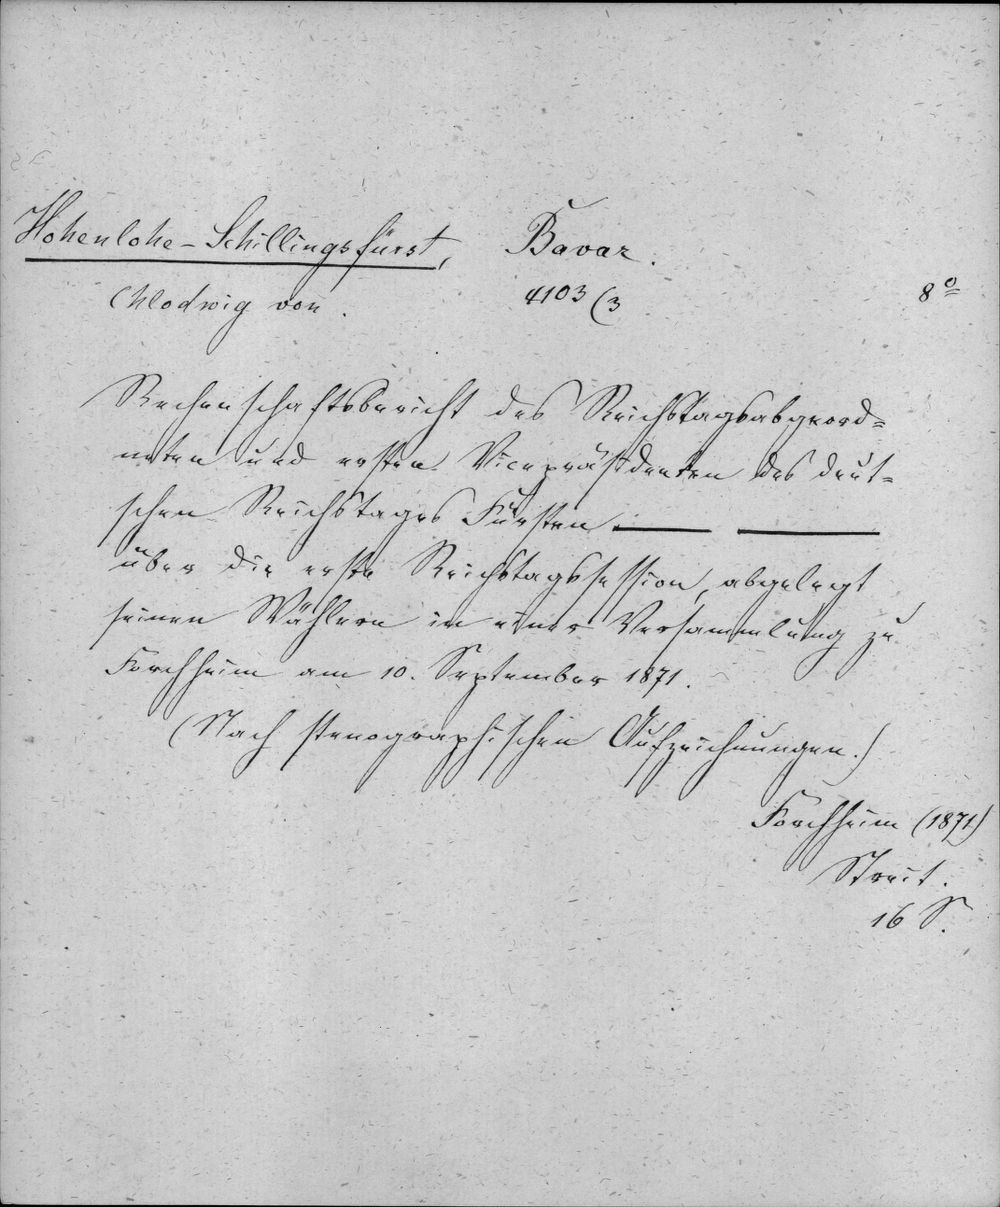 Hohenlohe-Schillingsfürst, Bavar.
Chlodwig von. 4103 (3 8º
Rechenschaftsbericht des Reichstagsabgeord=
neten und ersten Vicepräsidenten des deut=
schen Reichstages Fürsten — —
über die erste Reichstagssession, abgelegt
seinen Wählern in einer Versammlung zu
Forchheim am 10. September 1871.
(Nach stenographischen Aufzeichnungen.)
Forchheim (1871)
Streit.
16 S.